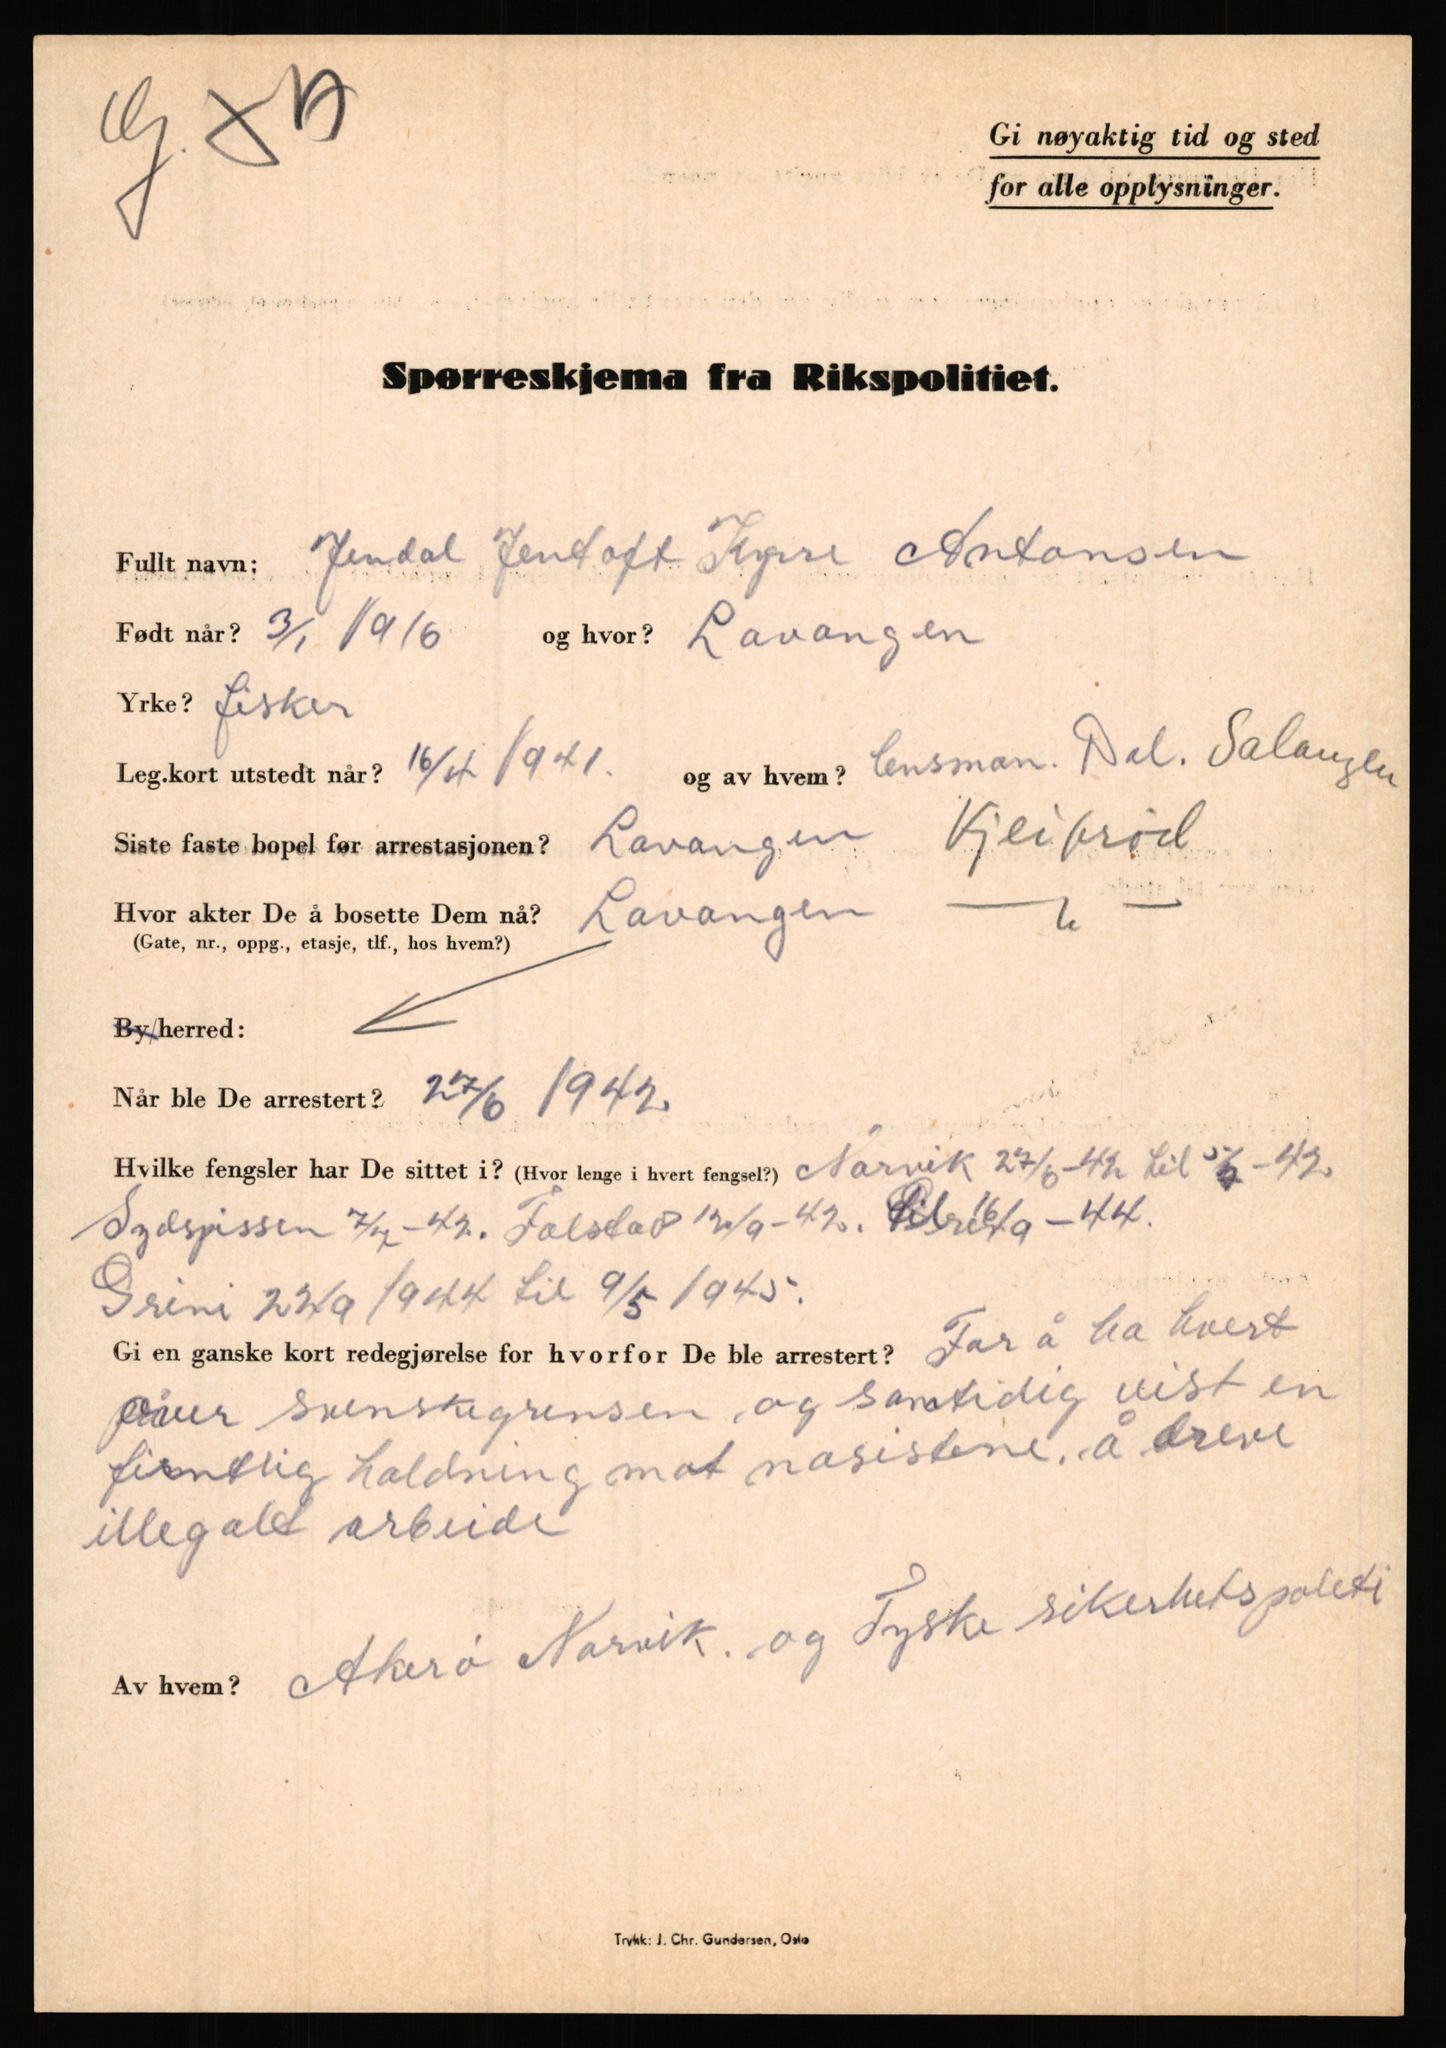 G.
Gi nøyaktig tid og sted
for alle opplysninger.
Spørreskjema fra Rikspolitiet.
Fullt navn: Jendal Jentoft Kyrre Antonsen
Født når? 3/1 1916 og hvor? Lavangen
Yrke? fisker
Leg.kort utstedt når? 16/4 1941. og av hvem? lensman. Dal. Salangen
Siste faste bopel før arrestasjonen? Lavangen
Hvor akter De å bosette Dem nå? Lavangen
(Gate, nr., oppg., etasje, tlf., hos hvem?)
By/herred:
Når ble De arrestert? 27/6 1942.
Hvilke fengsler har De sittet i? (Hvor lenge i hvert fengsel?) Narvik 27/6-42 til 5/7-42.
Sydspissen 7/7-42. Falstad 12/9-42. til 16/9-44.
Grini 22/9 1944 til 9/5 1945.
Gi en ganske kort redegjørelse for hvorfor De ble arrestert? For å ha hvert
over svenskegrensen, og samtidig vist en
fientlig holdning mot nasistene. å dreve
illegalt arbeide
Av hvem? Akerø Narvik. og Tyske sikerhetspoleti
Trykk: J. Chr. Gundersen, Oslo